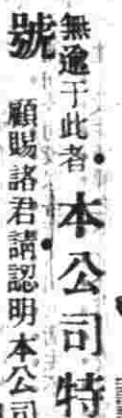 無逾于此者●本公司特
號 顧賜諸君請認明本公司